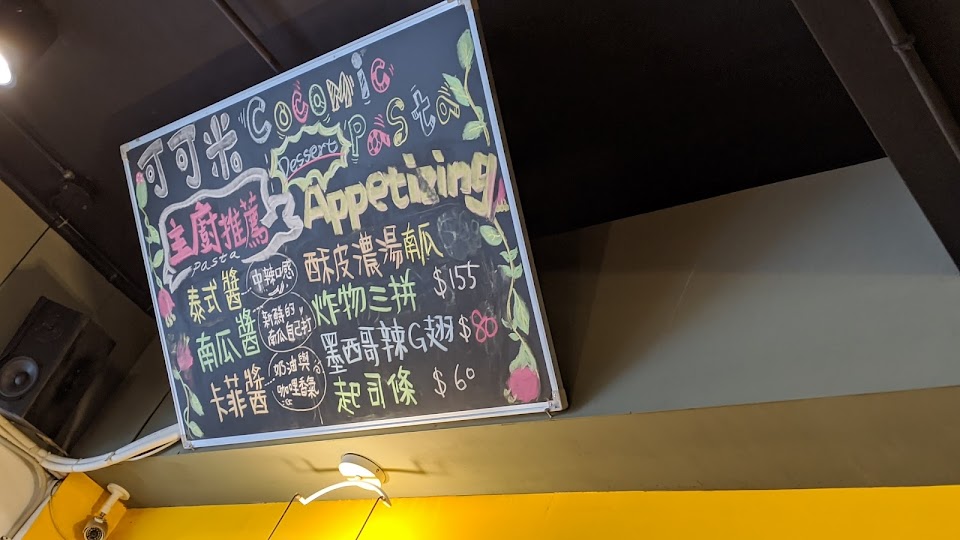 可可米 Cocomic
Dessert Pasta
主廚推薦 Appetizing
pasta
泰式醬 中辣口感
南瓜醬 新鮮的南瓜自己打
卡菲醬 奶油與咖哩香氣
酥皮濃湯南瓜
炸物三拼 $155
墨西哥辣G翅 $80
起司條 $60